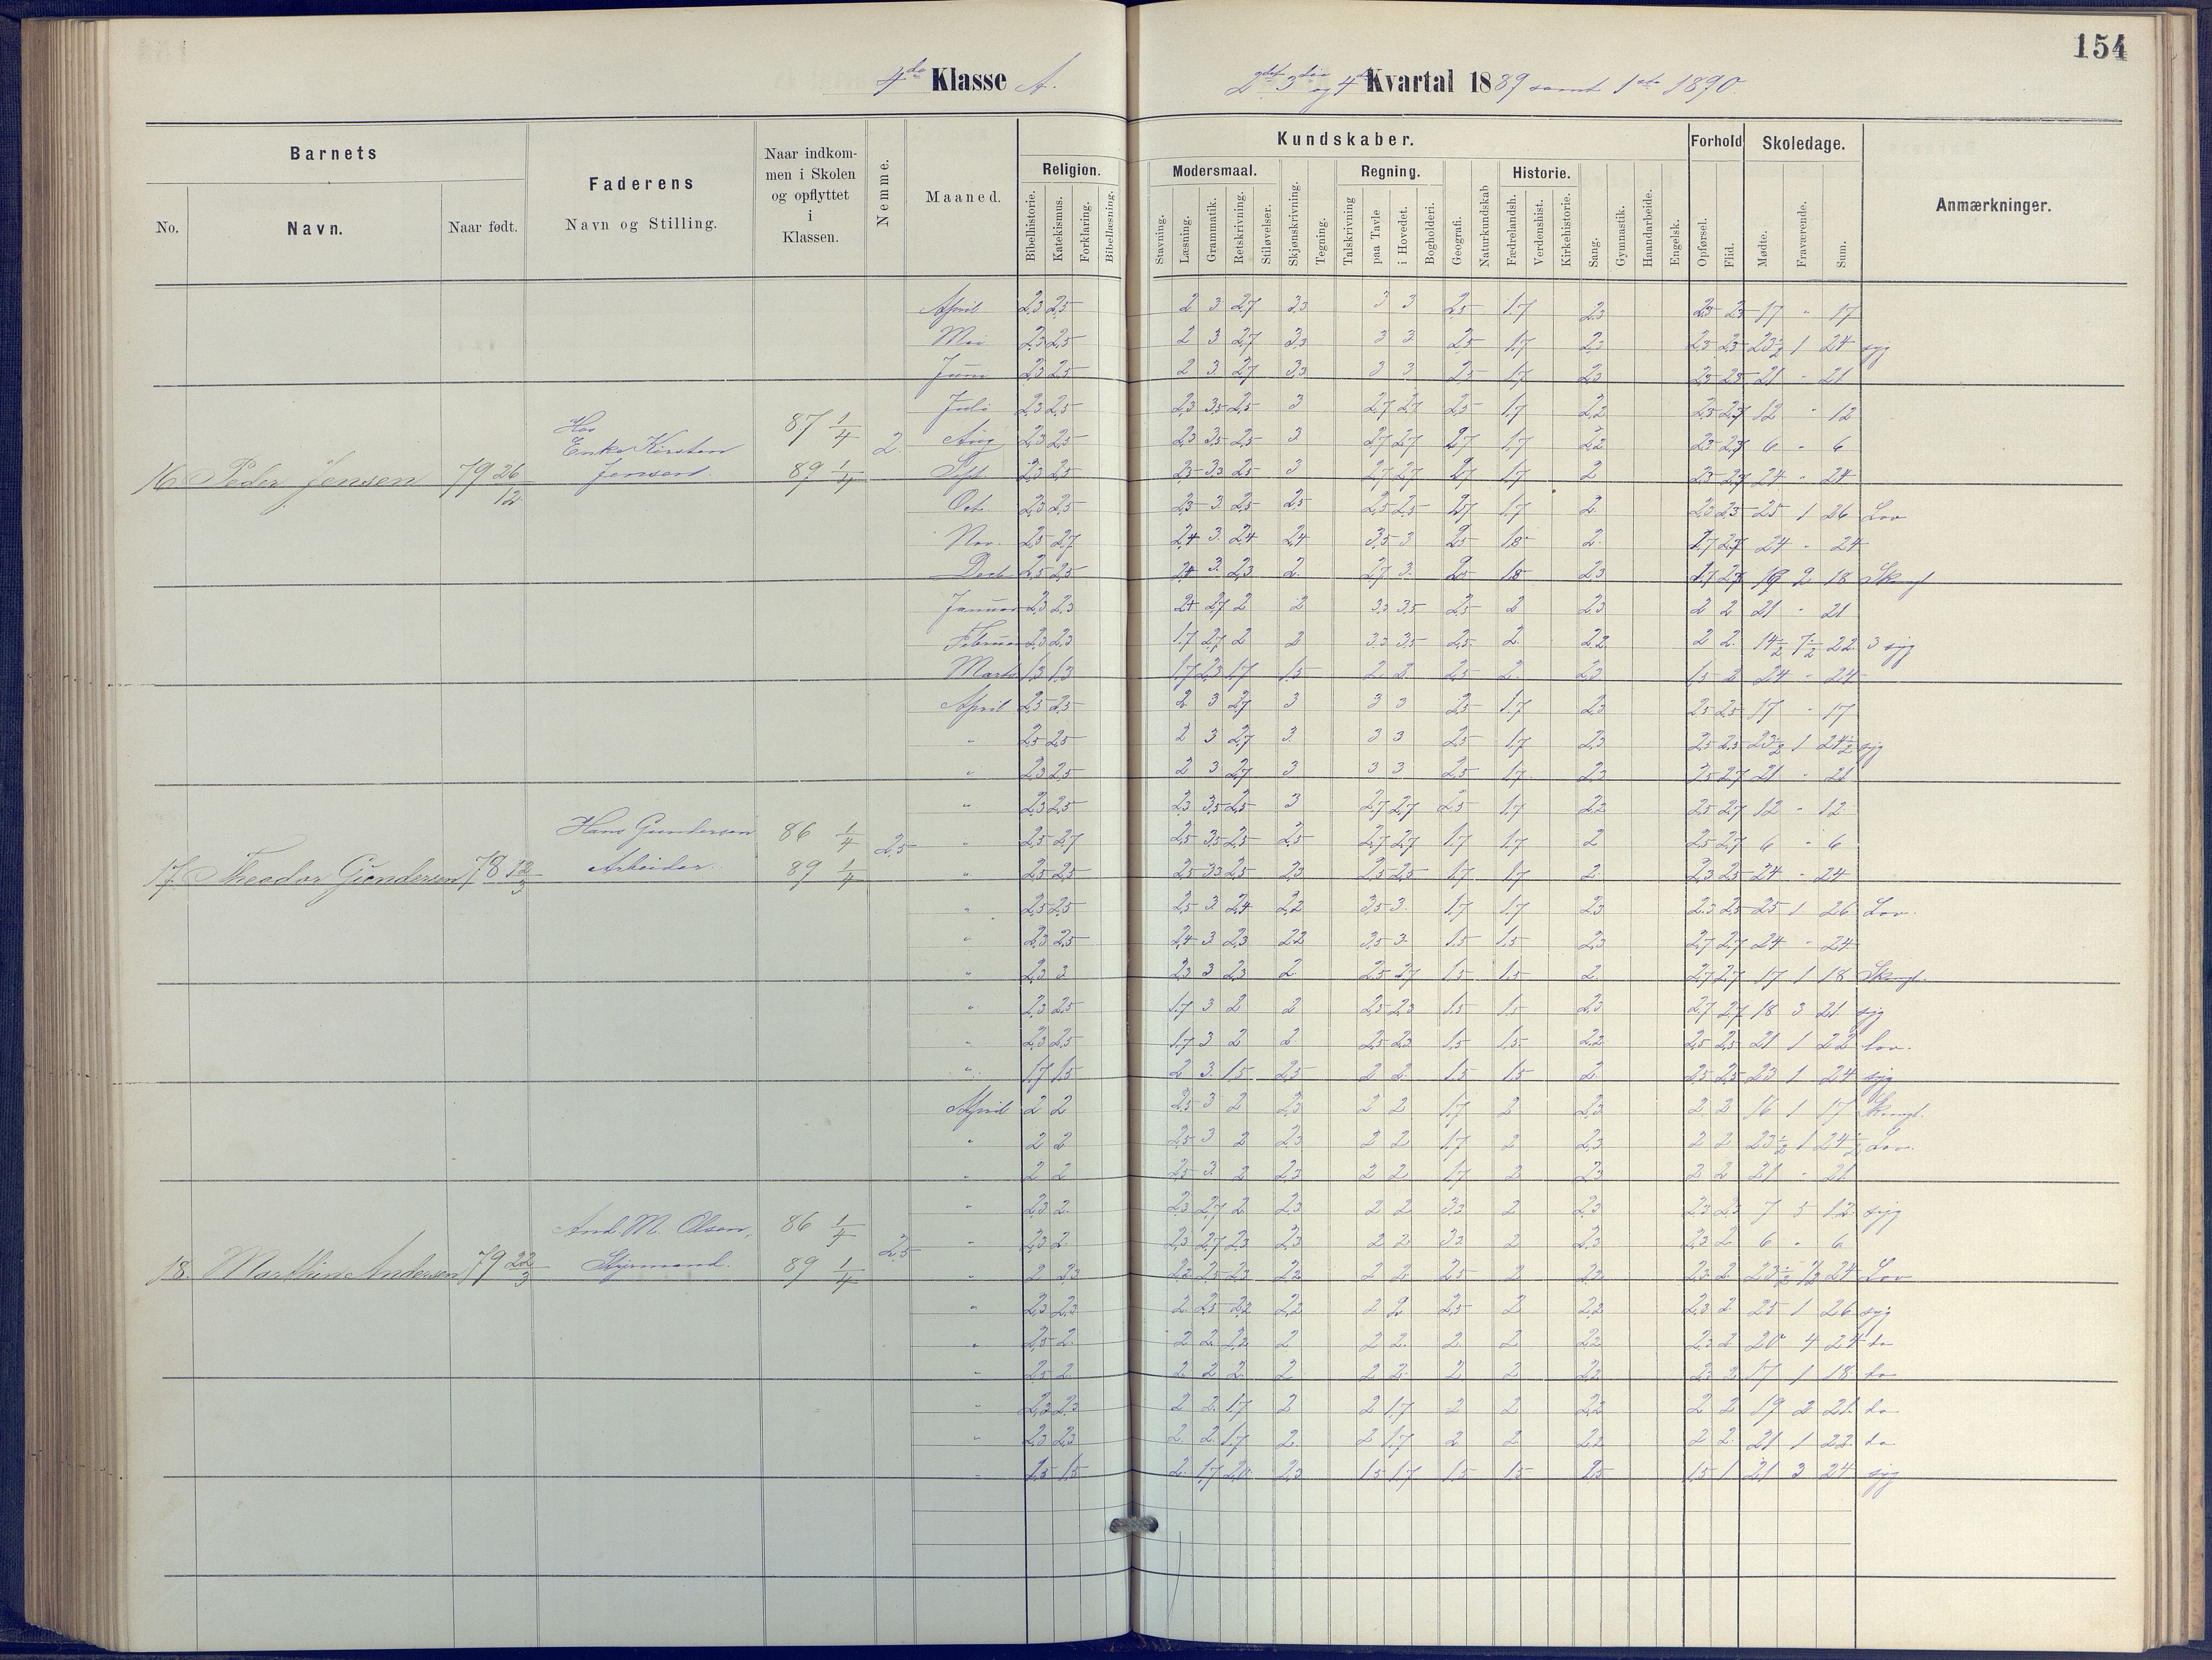 154
4de Klasse A.
2det 3die og 4de Kvartal 1889 samt 1ste 1890.
Barnets
Faderens
Naar indkommen i Skolen og opflyttet i Klassen.
Nemme.
Maaned.
Religion.
Kundskaber.
Modersmaal.
Regning.
Historie.
Forhold
Skoledage.
Anmærkninger.
No.
Navn.
Naar født.
Navn og Stilling.
Bibelhistorie.
Katekismus.
Forklaring.
Bibellæsning.
Stavning.
Læsning.
Grammatik.
Retskrivning.
Stiløvelser.
Skjønskrivning.
Tegning.
Talskrivning
paa Tavle
i Hovedet.
Bogholderi.
Geografi.
Naturkundskab
Fædrelandsh.
Verdenshist.
Kirkehistorie.
Sang.
Gymnastik.
Haandarbeide.
Engelsk.
Opførsel.
Flid.
Mødte.
Fraværende.
Sum.
April 2,3 2,5 2 3 2,7 3,3 3 3 2,5 1,7 2,3 2,3 2,3 17 " 17
Mai 2,3 2,5 2 3 2,7 3,3 3 3 2,5 1,7 2,3 2,3 2,3 23½ 1 24 syg
Juni 2,3 2,5 2 3 2,7 3,3 3 3 2,5 1,7 2,3 2,3 2,3 21 " 21
Juli 2,3 2,5 2,3 3,5 2,5 3 2,7 2,7 2,5 1,7 2,2 2,3 2,7 12 " 12
Aug 2,3 2,5 2,3 3,5 2,5 3 2,7 2,7 2,7 1,7 2,2 2,3 2,7 6 " 6
16 Peder Jensen 79 26/12 Hos Enke Kirsten Jensen. 87 1/4 89 1/4 2.
Sept. 2,3 2,5 2,3 3,3 2,5 3 2,7 2,7 2,7 1,7 2 2,3 2,7 24 " 24
Oct. 2,3 2,5 2,3 3 2,5 2,5 2,5 2,5 2,7 1,7 2 2,3 2,3 25 1 26 Lov
Nov. 2,5 2,7 2,4 3 2,4 2,4 3,5 3 2,5 1,8 2 1,7 2,7 24 " 24
Decb 2,5 2,5 2,4 3 2,3 2 2,7 3 2,5 1,8 2,3 1,7 2,7 2 18
Januar 2,3 2,3 2,4 2,7 2 2 3,3 3,5 2,5 2 2,3 2 2 21 " 21
Februar 2,3 2,3 1,7 2,7 2 2 3,3 3,5 2,5 2 2,2 2 2 14½ 7½ 22 3 syg
Marts 1,3 1,3 1,7 2,3 1,7 1,5 2 2 2,5 2 2,3 1,5 2 24 " 24
April 2,5 2,5 2 3 2,7 3 3 3 2,5 1,7 2,3 2,5 2,5 17 " 17
" 2,5 2,5 2 3 2,7 3 3 3 2,5 1,7 2,3 2,5 2,5 23½ 1 24½ syg
" 2,3 2,5 2 3 2,7 3 3 3 2,5 1,7 2,3 2,5 2,7 21 " 21
" 2,3 2,5 2,3 3,5 2,5 3 2,7 2,7 2,5 1,7 2,2 2,5 2,7 12 " 12
" 2,5 2,7 2,5 3,5 2,5 2,5 2,7 2,7 1,7 1,7 2 2,5 2,7 6 " 6
17. Theodor Gundersen 78 12/3 Hans Gundersen Arbeider. 86 1/4 89 1/4 2,5
" 2,5 2,5 2,5 3,3 2,5 2,3 2,5 2,5 1,7 1,7 2 2,3 2,5 24 " 24
" 2,5 2,5 2,5 3 2,4 2,2 3,5 3 1,7 1,7 2,3 2,3 2,5 25 1 26 Lov.
" 2,3 2,5 2,4 3 2,3 2,2 3,5 3 1,5 1,5 2,3 2,7 2,7 24 " 24
" 2,3 3 2,3 3 2,3 2 2,5 2,7 1,5 1,5 2 2,7 2,7 17 1 18
" 2,3 2,5 1,7 3 2 2 2,5 2,3 1,5 1,5 2,3 2,7 2,7 18 3 21 syg
" 2,3 2,5 1,7 3 2 2 2,5 2,3 1,5 1,5 2,2 2,5 2,5 21 1 22 lov.
" 1,7 1,5 2 3 1,5 2,5 2 2 1,5 1,5 2 2,5 2,5 23 1 24 syg
April 2 2 2,5 3 2 2,3 2 2 1,7 2 2,3 2 2 16 1 17
" 2 2 2,5 3 2 2,3 2 2 1,7 2 2,3 2 2 23½ 1 24½ Lov.
" 2 2 2,5 3 2 2,3 2 2 1,7 2 2,3 2 2 21 " 21
" 2,3 2 2,3 2,7 2 2,3 2 2 3,3 2 2,3 2,3 2,3 7 5 12 syg
" 2,3 2 2,3 2,7 2,3 2,3 2 2 3,3 2 2,3 2,3 2 6 " 6
18. Marthin Andersen 79 22/3 And M. Olsen, Styrmand. 86 1/4 89 1/4 2,5
" 2 2,3 2,3 2,5 2,3 2,2 2 2 2,5 2 2,2 2,3 2 23½ ½ 24 Lov
" 2,3 2,3 2 2,5 2,2 2,2 2 2 2,5 2 2,2 2,3 2 25 1 26 syg
" 2,5 2 2 2 2,2 2 2 2 2 2 2,2 2,3 2 20 4 24 do
" 2,5 2 2 2 2 2 2 2 2 2 2,2 2 2 17 1 18 do
" 2,3 2,3 2 2 1,7 2 2 1,7 2 2 2,2 2 2 19 2 21 do
" 2,3 2,3 2 2 1,7 2 2 1,7 2 2 2,2 2 2 21 1 22 do
" 1,5 1,5 2 1,7 2,3 1,5 1,7 1,5 1,5 2,5 1,5 1 21 3 24 syg